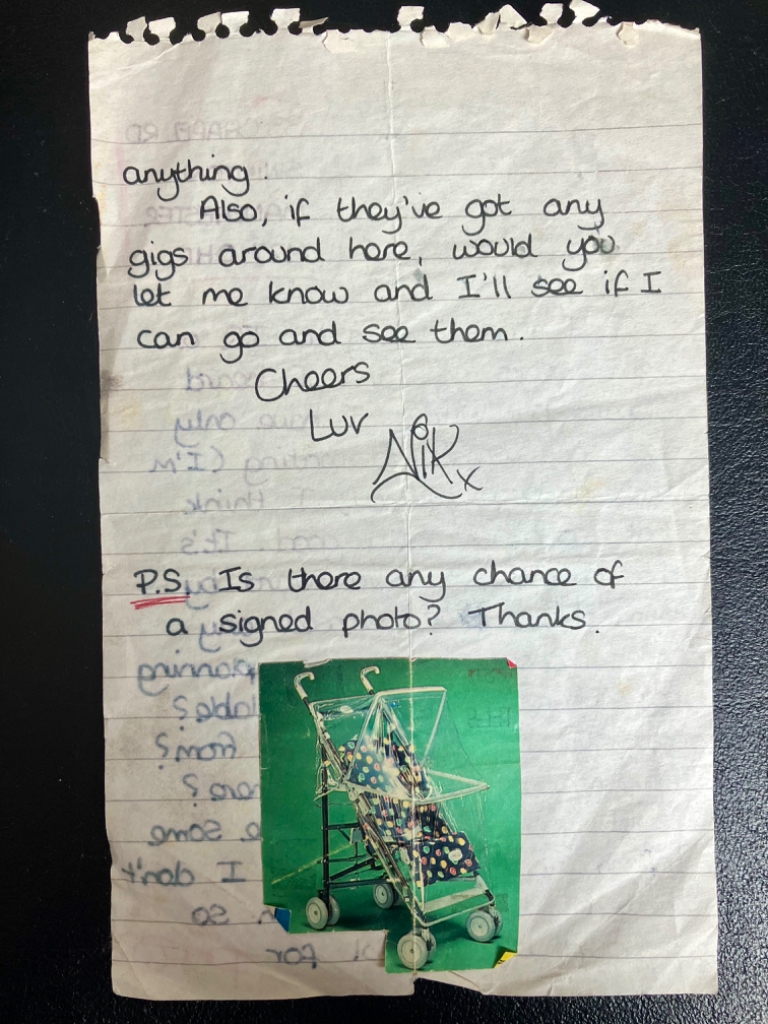 anything.
Also, if they've got any
gigs around here, would you
let me know and I'll see if I
can go and see them.
Cheers
Luv
Nik x
P.S. Is there any chance of
a signed photo? Thanks.